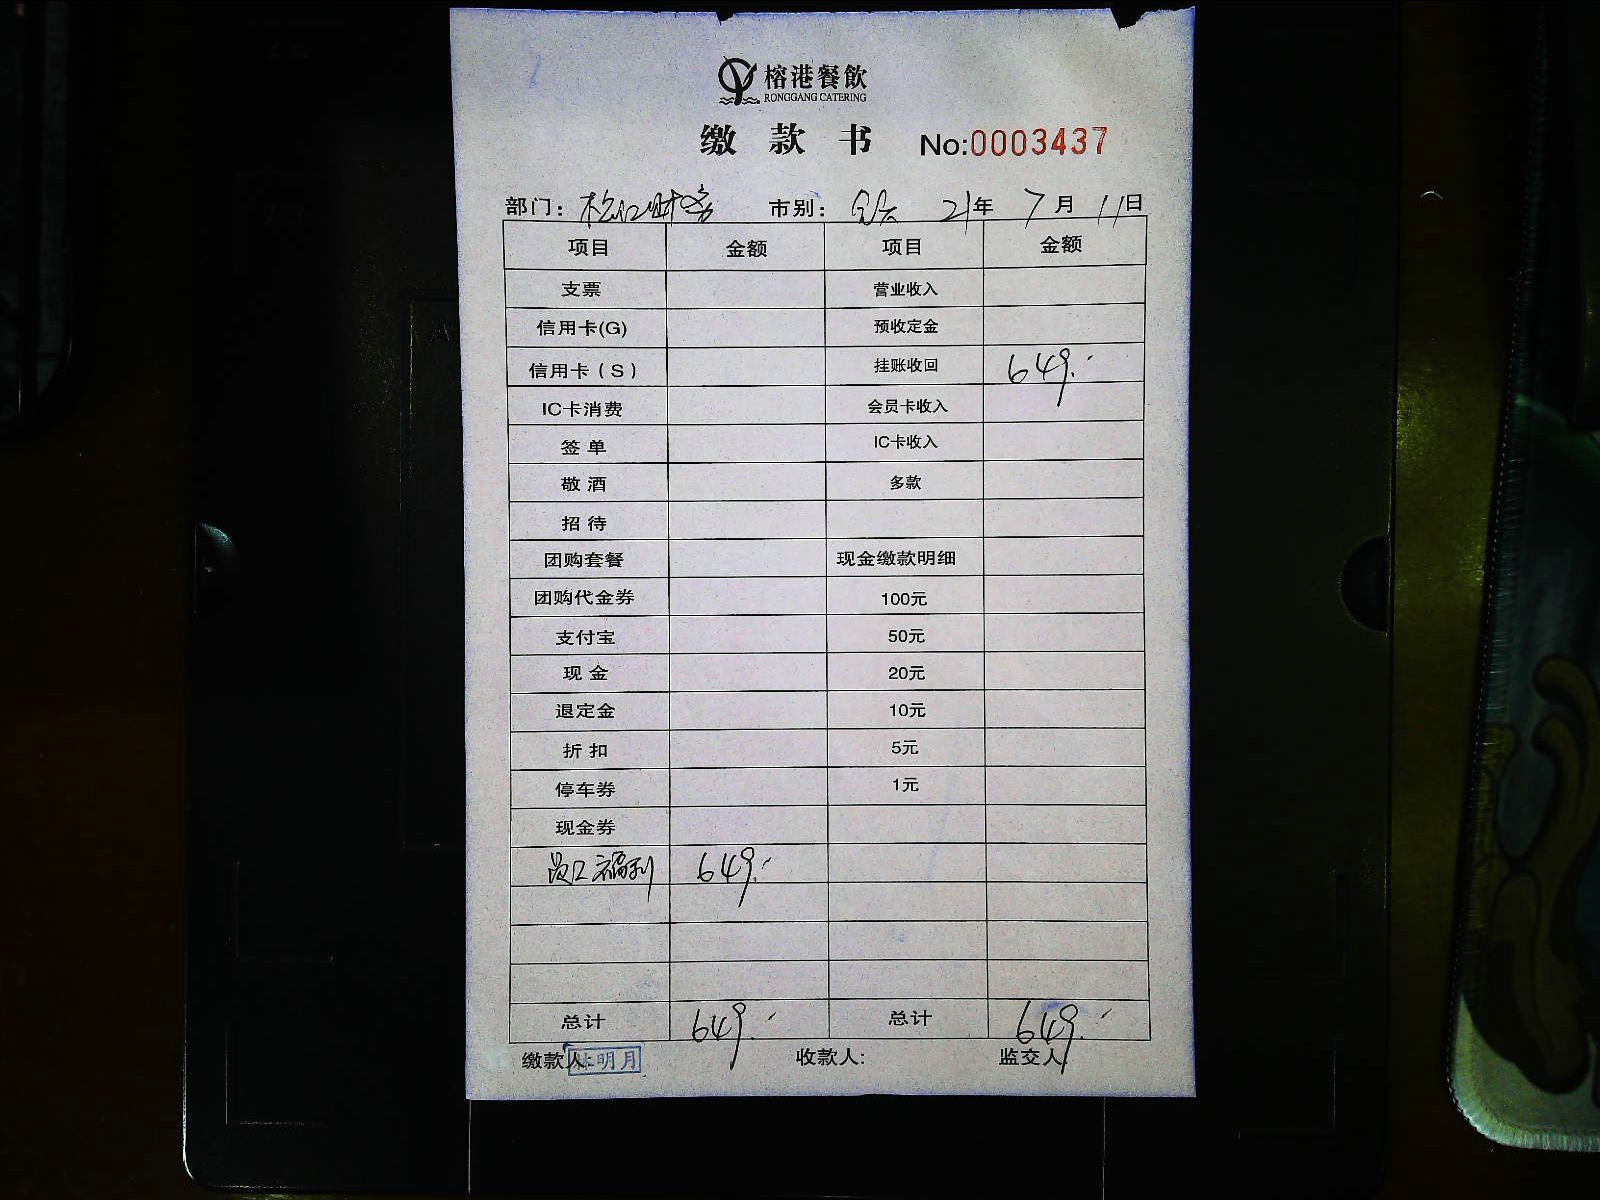 榕港餐飲
RONGGANG CATERING
缴款书 No:0003437
部门：松江财务 市别： 21年 7月 11日
项目 金额 项目 金额
支票 营业收入
信用卡(G) 预收定金
信用卡（S） 挂账收回 649.-
IC卡消费 会员卡收入
签单 IC卡收入
敬酒 多款
招待
团购套餐 现金缴款明细
团购代金券 100元
支付宝 50元
现金 20元
退定金 10元
折扣 5元
停车券 1元
现金券
员工福利 649.-
总计 649.- 总计 649.-
缴款人: 林明月 收款人: 监交人